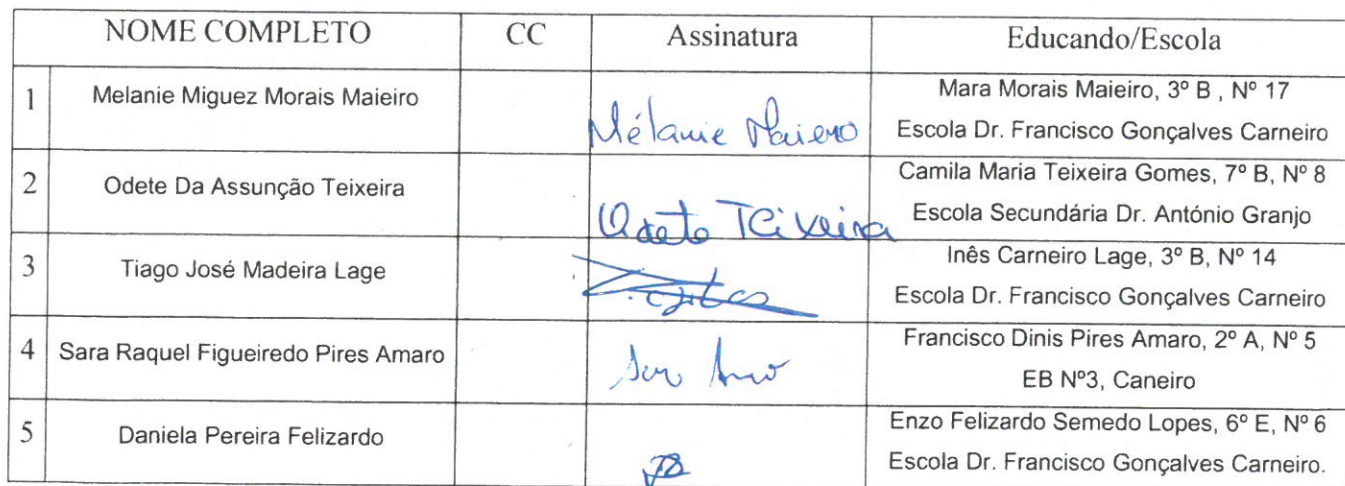 NOME COMPLETO CC Assinatura Educando/Escola
1 Melanie Miguez Morais Maieiro Mélanie Maiero Mara Morais Maieiro, 3º B , Nº 17
Escola Dr. Francisco Gonçalves Carneiro
2 Odete Da Assunção Teixeira Odete Teixeira Camila Maria Teixeira Gomes, 7º B, Nº 8
Escola Secundária Dr. António Granjo
3 Tiago José Madeira Lage Inês Carneiro Lage, 3º B, Nº 14
Escola Dr. Francisco Gonçalves Carneiro
4 Sara Raquel Figueiredo Pires Amaro Francisco Dinis Pires Amaro, 2º A, Nº 5
EB Nº3, Caneiro
5 Daniela Pereira Felizardo Enzo Felizardo Semedo Lopes, 6º E, Nº 6
Escola Dr. Francisco Gonçalves Carneiro.